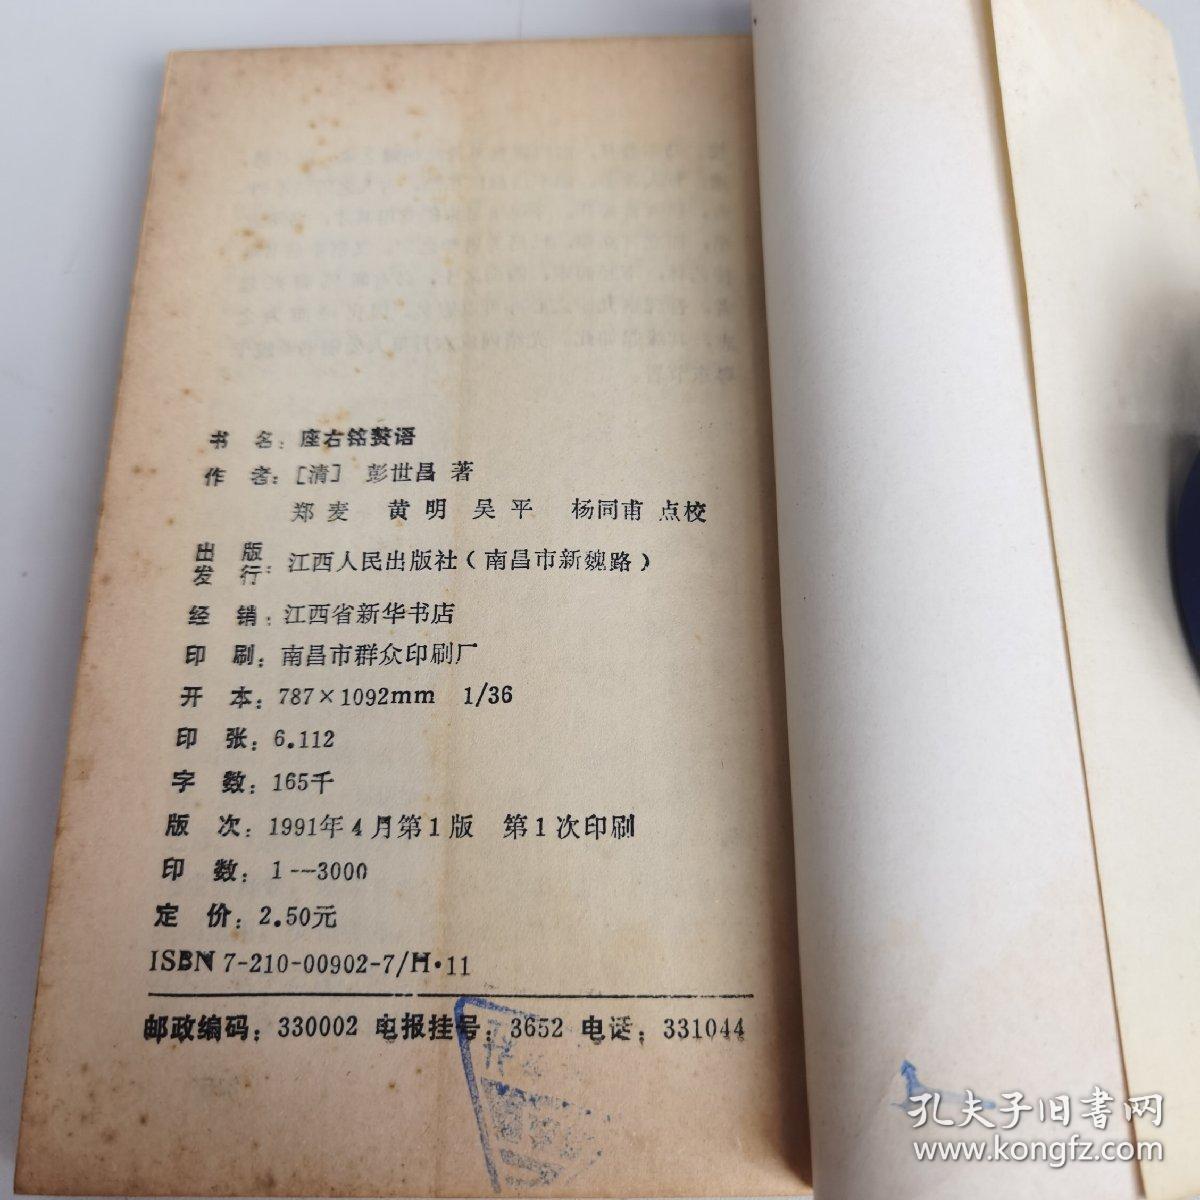 书 名：座右铭赘语
作 者：[清] 彭世昌 著
郑麦 黄明 吴平 杨同甫 点校
出版
发行：江西人民出版社（南昌市新魏路）
经 销：江西省新华书店
印 刷：南昌市群众印刷厂
开 本：787×1092mm 1/36
印 张：6.112
字 数：165千
版 次：1991年4月第1版 第1次印刷
印 数：1--3000
定 价：2.50元
ISBN 7-210-00902-7/H·11
邮政编码：330002 电报挂号：3652 电话：331044
孔夫子旧书网
www.kongfz.com